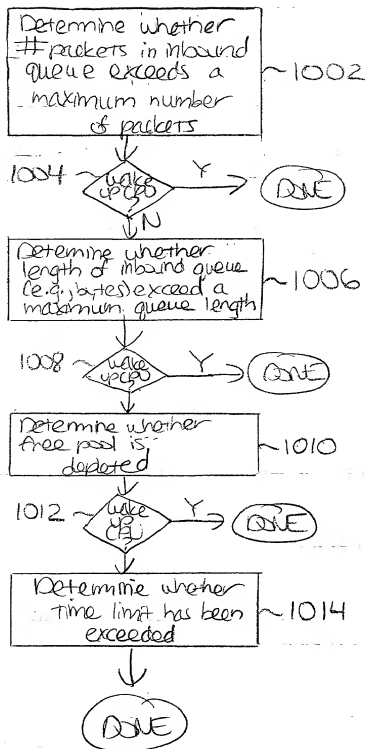 Determine whether
# packets in inbound
queue exceeds a
maximum number
of packets
~1002
1004
wake
up CPU
Y
DONE
N
Determine whether
length of inbound queue
(e.g., bytes) exceed a
maximum queue length
~1006
1008
wake
up CPU
Y
DONE
Determine whether
free pool is
depleted
~1010
1012
wake
up
CPU
Y
DONE
Determine whether
time limit has been
exceeded
~1014
DONE